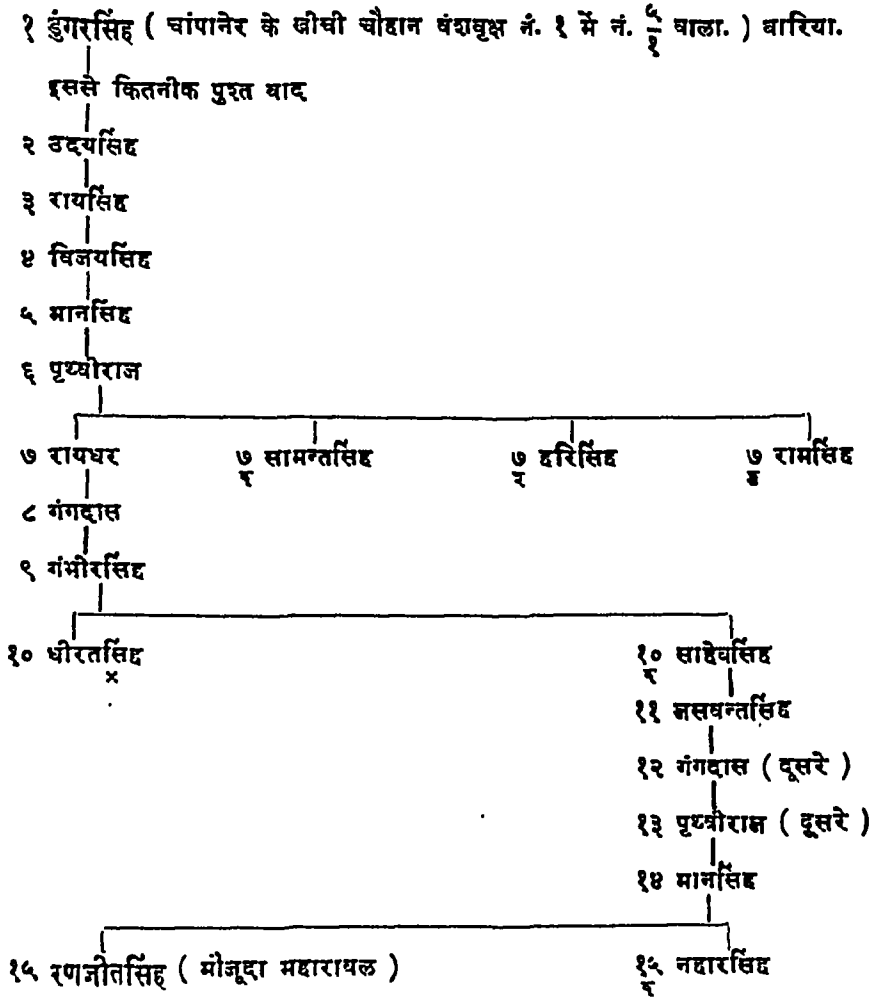 १ डुंगरसिंह ( चांपानेर के खीची चौहान वंशवृक्ष नं. १ में नं. ५/१ वाला. ) वारिया.
इससे कितनीक पुश्त बाद
२ उदयसिंह
३ रायसिंह
४ विजयसिंह
५ मानसिंह
६ पृथ्वीराज
७ रायधर ७/१ सामन्तसिंह ७/२ हरिसिंह ७/३ रामसिंह
८ गंगदास
९ गंभीरसिंह
१० धीरतसिंह × १०/१ साहेबसिंह
११ जसवन्तसिंह
१२ गंगदास ( दूसरे )
१३ पृथ्वीराज ( दूसरे )
१४ मानसिंह
१५ रणजीतसिंह ( मौजूदा महारावल ) १५/१ नहारसिंह